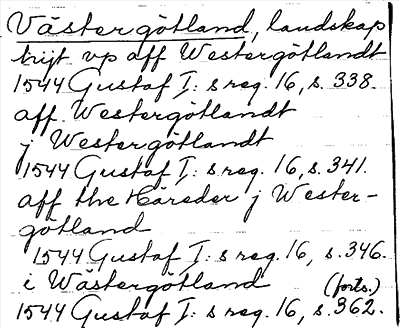 Västergötland, landskap
trijt. vp aff Westergötlandt
1544 Gustaf I: s reg. 16, s. 338.
aff Westergötlandt
j Westergötlandt
1544 Gustaf I: s reg. 16, s. 341.
aff the Häreder j Wester-
götland
1544 Gustaf I: s reg. 16, s. 346.
i Wästergötland (forts.)
1544 Gustaf I: s reg. 16, s. 362.